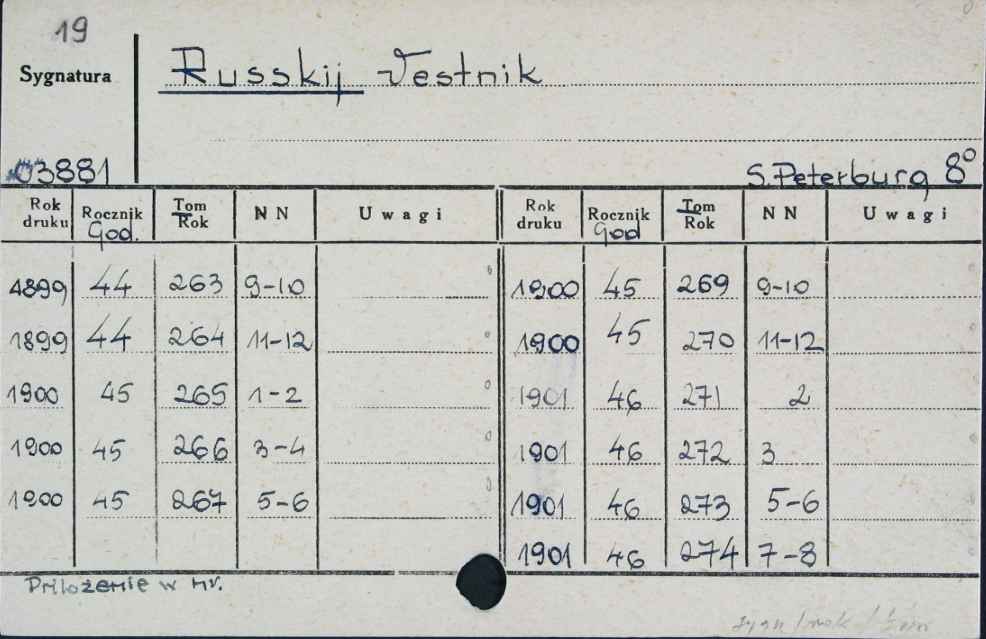 19
Sygnatura
Russkij Vestnik
03881
S. Peterburg 8°
Rok druku Rocznik God. Tom Rok NN Uwagi Rok druku Rocznik God Tom Rok NN Uwagi
1899 44 263 9-10 1900 45 269 9-10
1899 44 264 11-12 1900 45 270 11-12
1900 45 265 1-2 1901 46 271 2
1900 45 266 3-4 1901 46 272 3
1900 45 267 5-6 1901 46 273 5-6
1901 46 274 7-8
Priloženie w nr.